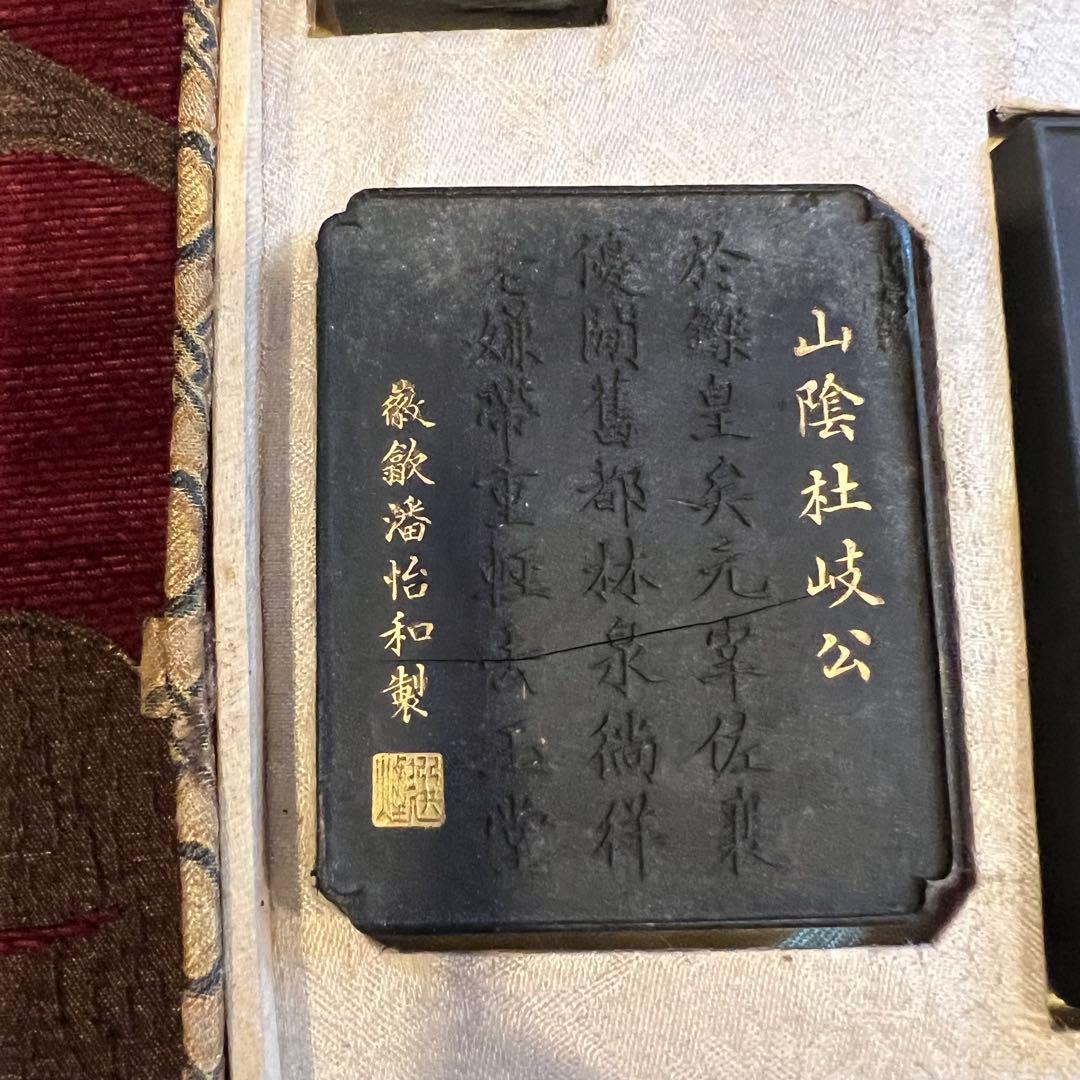 山陰杜岐公
於鑠皇矣元宰佐襄
優閒舊都林泉徜徉
嫌帶重去玉堂
徽歙潘怡和製
選煙